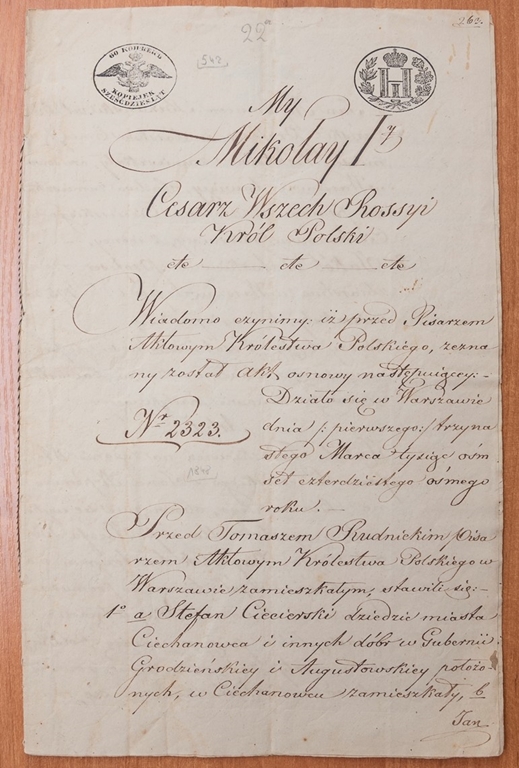 22ª
263.
542
60 КОПѢЕКЪ
KOPIEJEK
SZEŚĆDZIESIĄT
My
Mikołay Iy
Cesarz Wszech Rossyi
Król Polski
etc etc etc
Wiadomo czynimy: iż przed Pisarzem
Aktowym Królestwa Polskiego, zezna
ny został Akt osnowy następuiącey:-
Działo się w Warszawie
Nr 2323.
dnia /: pierwszego :/ trzyna
stego Marca tysiąc ośm
set czterdziestego ósmego
roku. —
1848
Przed Tomaszem Rudnickim Pisa
rzem Aktowym Królestwa Polskiego w
Warszawie zamieszkałym, stawili się:-
1º a Stefan Ciecierski dziedzic miasta
Ciechanowca i innych dóbr w Gubernii
Grodzieńskiey i Augustowskiey położo
nych, w Ciechanowcu zamieszkały, b
Jan